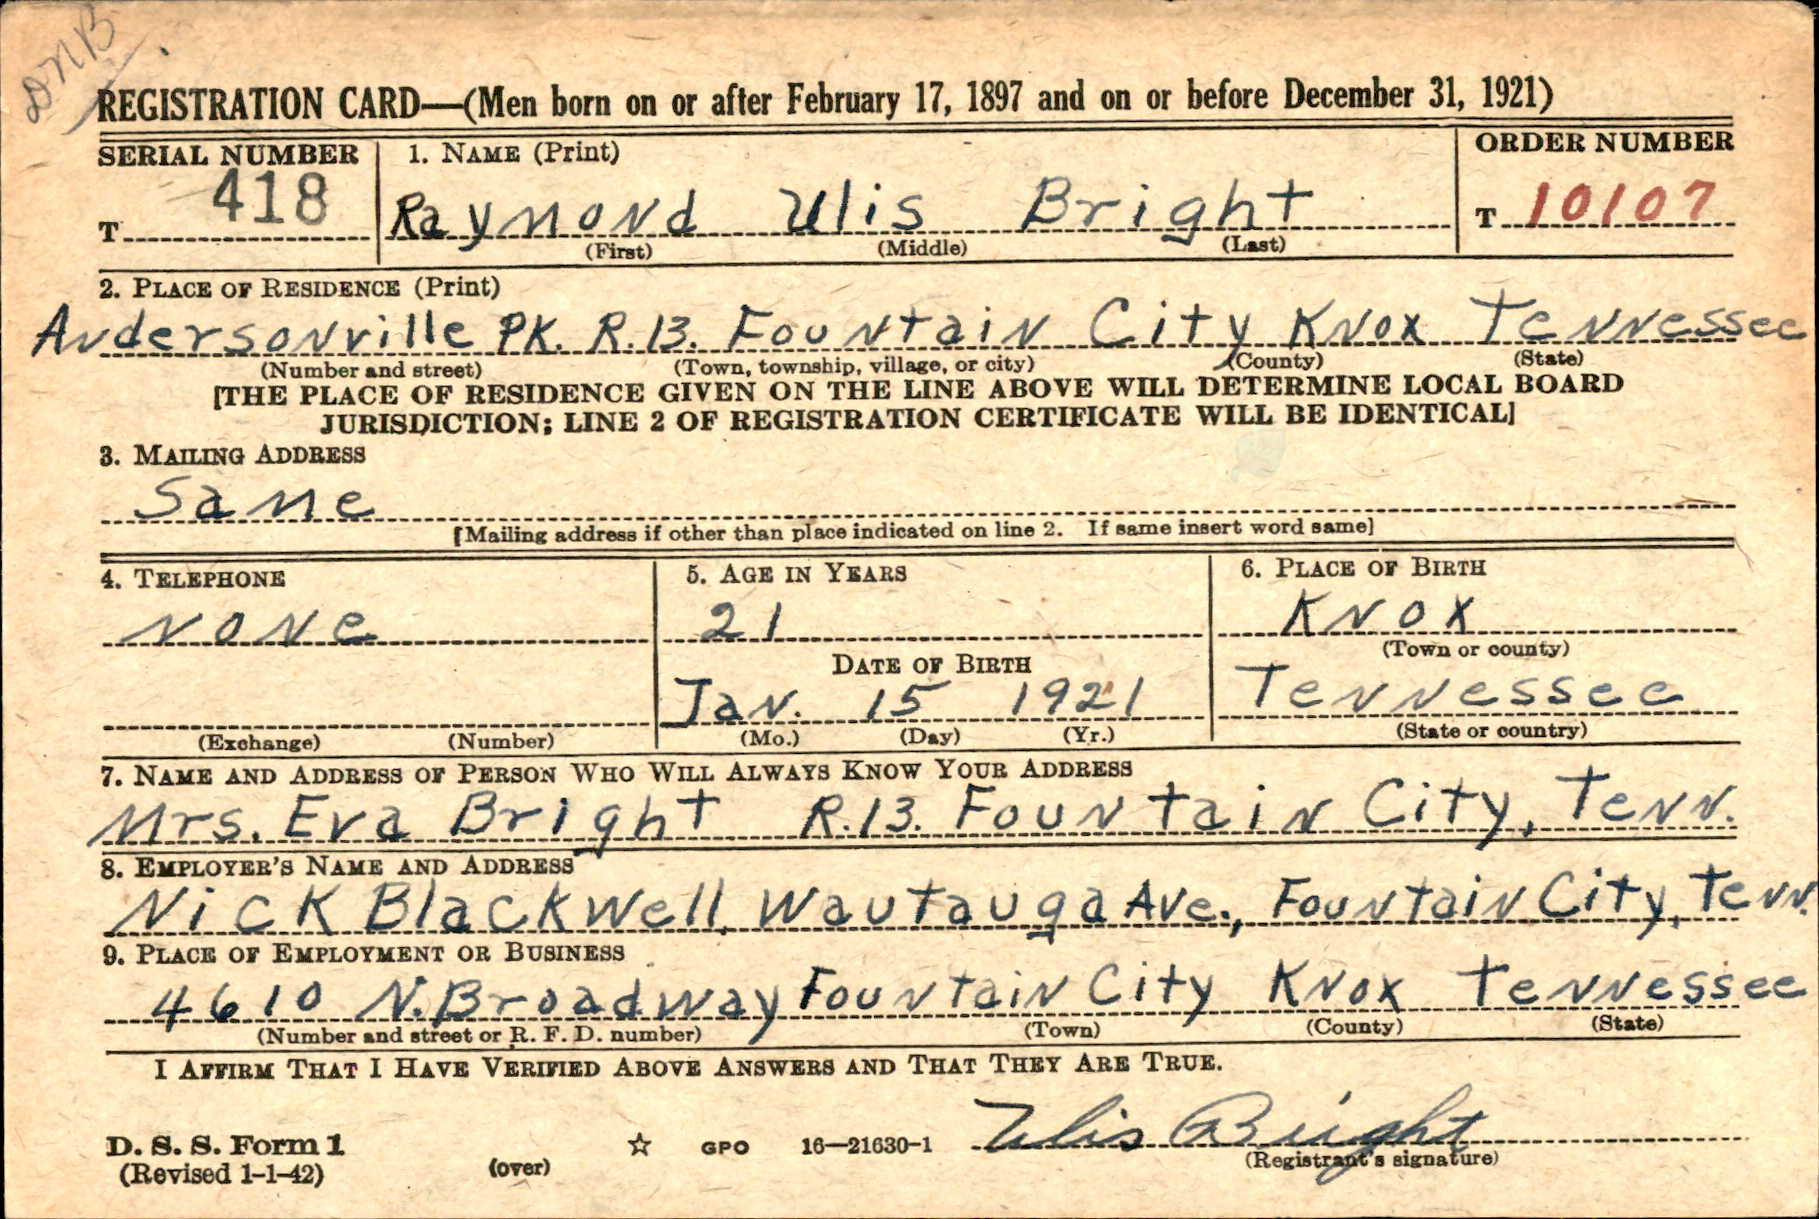 DNB
REGISTRATION CARD—(Men born on or after February 17, 1897 and on or before December 31, 1921)
SERIAL NUMBER 1. NAME (Print) ORDER NUMBER
T 418 Raymond Ulis Bright T 10107
(First) (Middle) (Last)
2. PLACE OF RESIDENCE (Print)
Andersonville PK. R.13. Fountain City Knox Tennessee
(Number and street) (Town, township, village, or city) (County) (State)
[THE PLACE OF RESIDENCE GIVEN ON THE LINE ABOVE WILL DETERMINE LOCAL BOARD
JURISDICTION; LINE 2 OF REGISTRATION CERTIFICATE WILL BE IDENTICAL]
3. MAILING ADDRESS
Same
[Mailing address if other than place indicated on line 2. If same insert word same]
4. TELEPHONE 5. AGE IN YEARS 6. PLACE OF BIRTH
None 21 Knox
(Town or county)
DATE OF BIRTH
Jan. 15 1921 Tennessee
(Exchange) (Number) (Mo.) (Day) (Yr.) (State or country)
7. NAME AND ADDRESS OF PERSON WHO WILL ALWAYS KNOW YOUR ADDRESS
Mrs. Eva Bright R.13. Fountain City, Tenn.
8. EMPLOYER'S NAME AND ADDRESS
Nick Blackwell, Wautauga Ave., Fountain City, Tenn.
9. PLACE OF EMPLOYMENT OR BUSINESS
4610 N. Broadway Fountain City Knox Tennessee
(Number and street or R. F. D. number) (Town) (County) (State)
I AFFIRM THAT I HAVE VERIFIED ABOVE ANSWERS AND THAT THEY ARE TRUE.
D. S. S. Form 1 ☆ GPO 16—21630-1 Ulis Bright
(Revised 1-1-42) (over) (Registrant's signature)